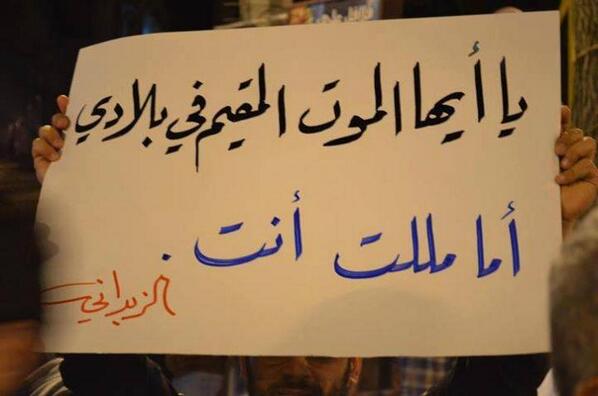 يا أيها الموت المقيم في بلادي
أما مللت أنت .
الزبداني